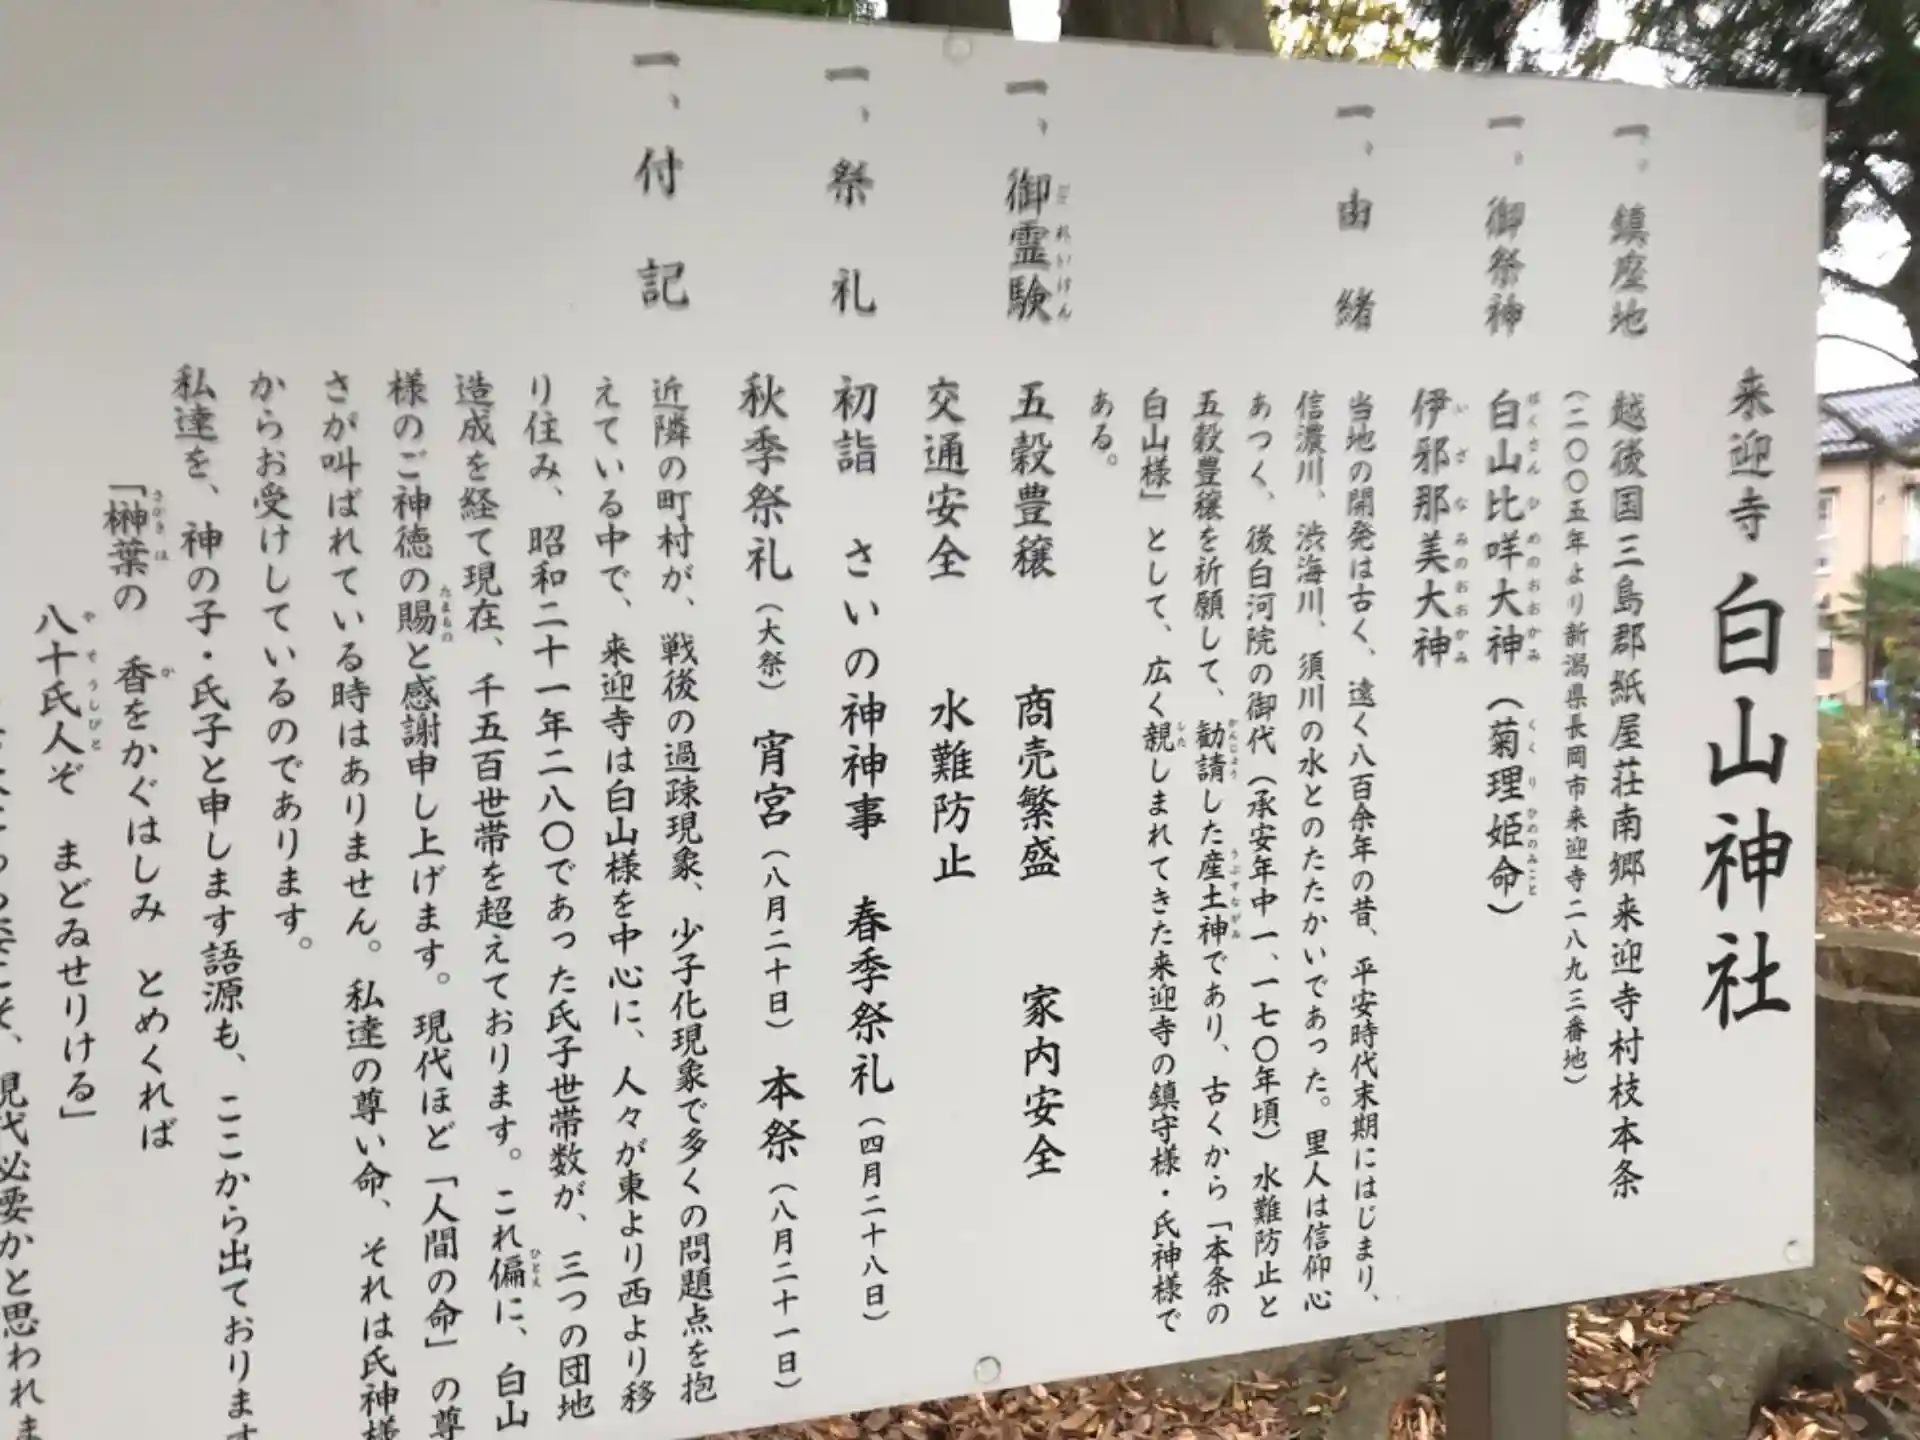 来迎寺 白山神社
一、鎮座地 越後国三島郡紙屋荘南郷来迎寺村枝本条
(二〇〇五年より新潟県長岡市来迎寺二八九三番地)
一、御祭神 白山比咩大神(菊理姫命)
伊邪那美大神
一、由緒 当地の開発は古く、遠く八百余年の昔、平安時代末期にはじまり、
信濃川、渋海川、須川の水とのたたかいであった。里人は信仰心
あつく、後白河院の御代(承安年中一、一七〇年頃)水難防止と
五穀豊穣を祈願して、勧請した産土神であり、古くから「本条の
白山様」として、広く親しまれてきた来迎寺の鎮守様・氏神様で
ある。
一、御霊験 五穀豊穣 商売繁盛 家内安全
交通安全 水難防止
一、祭礼 初詣 さいの神神事 春季祭礼(四月二十八日)
秋季祭礼(大祭) 宵宮(八月二十日) 本祭(八月二十一日)
一、付記 近隣の町村が、戦後の過疎現象、少子化現象で多くの問題点を抱
えている中で、来迎寺は白山様を中心に、人々が東より西より移
り住み、昭和二十一年二八〇であった氏子世帯数が、三つの団地
造成を経て現在、千五百世帯を超えております。これ偏に、白山
様のご神徳の賜と感謝申し上げます。現代ほど「人間の命」の尊
さが叫ばれている時はありません。私達の尊い命、それは氏神様
からお受けしているのであります。
私達を、神の子・氏子と申します語源も、ここから出ております
「榊葉の 香をかぐはしみ とめくれば
八十氏人ぞ まどゐせりける」
こそ、現代必要かと思われま